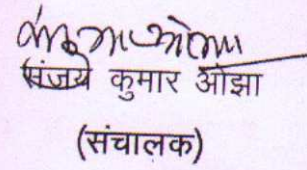 संजय कुमार ओझा
(संचालक)